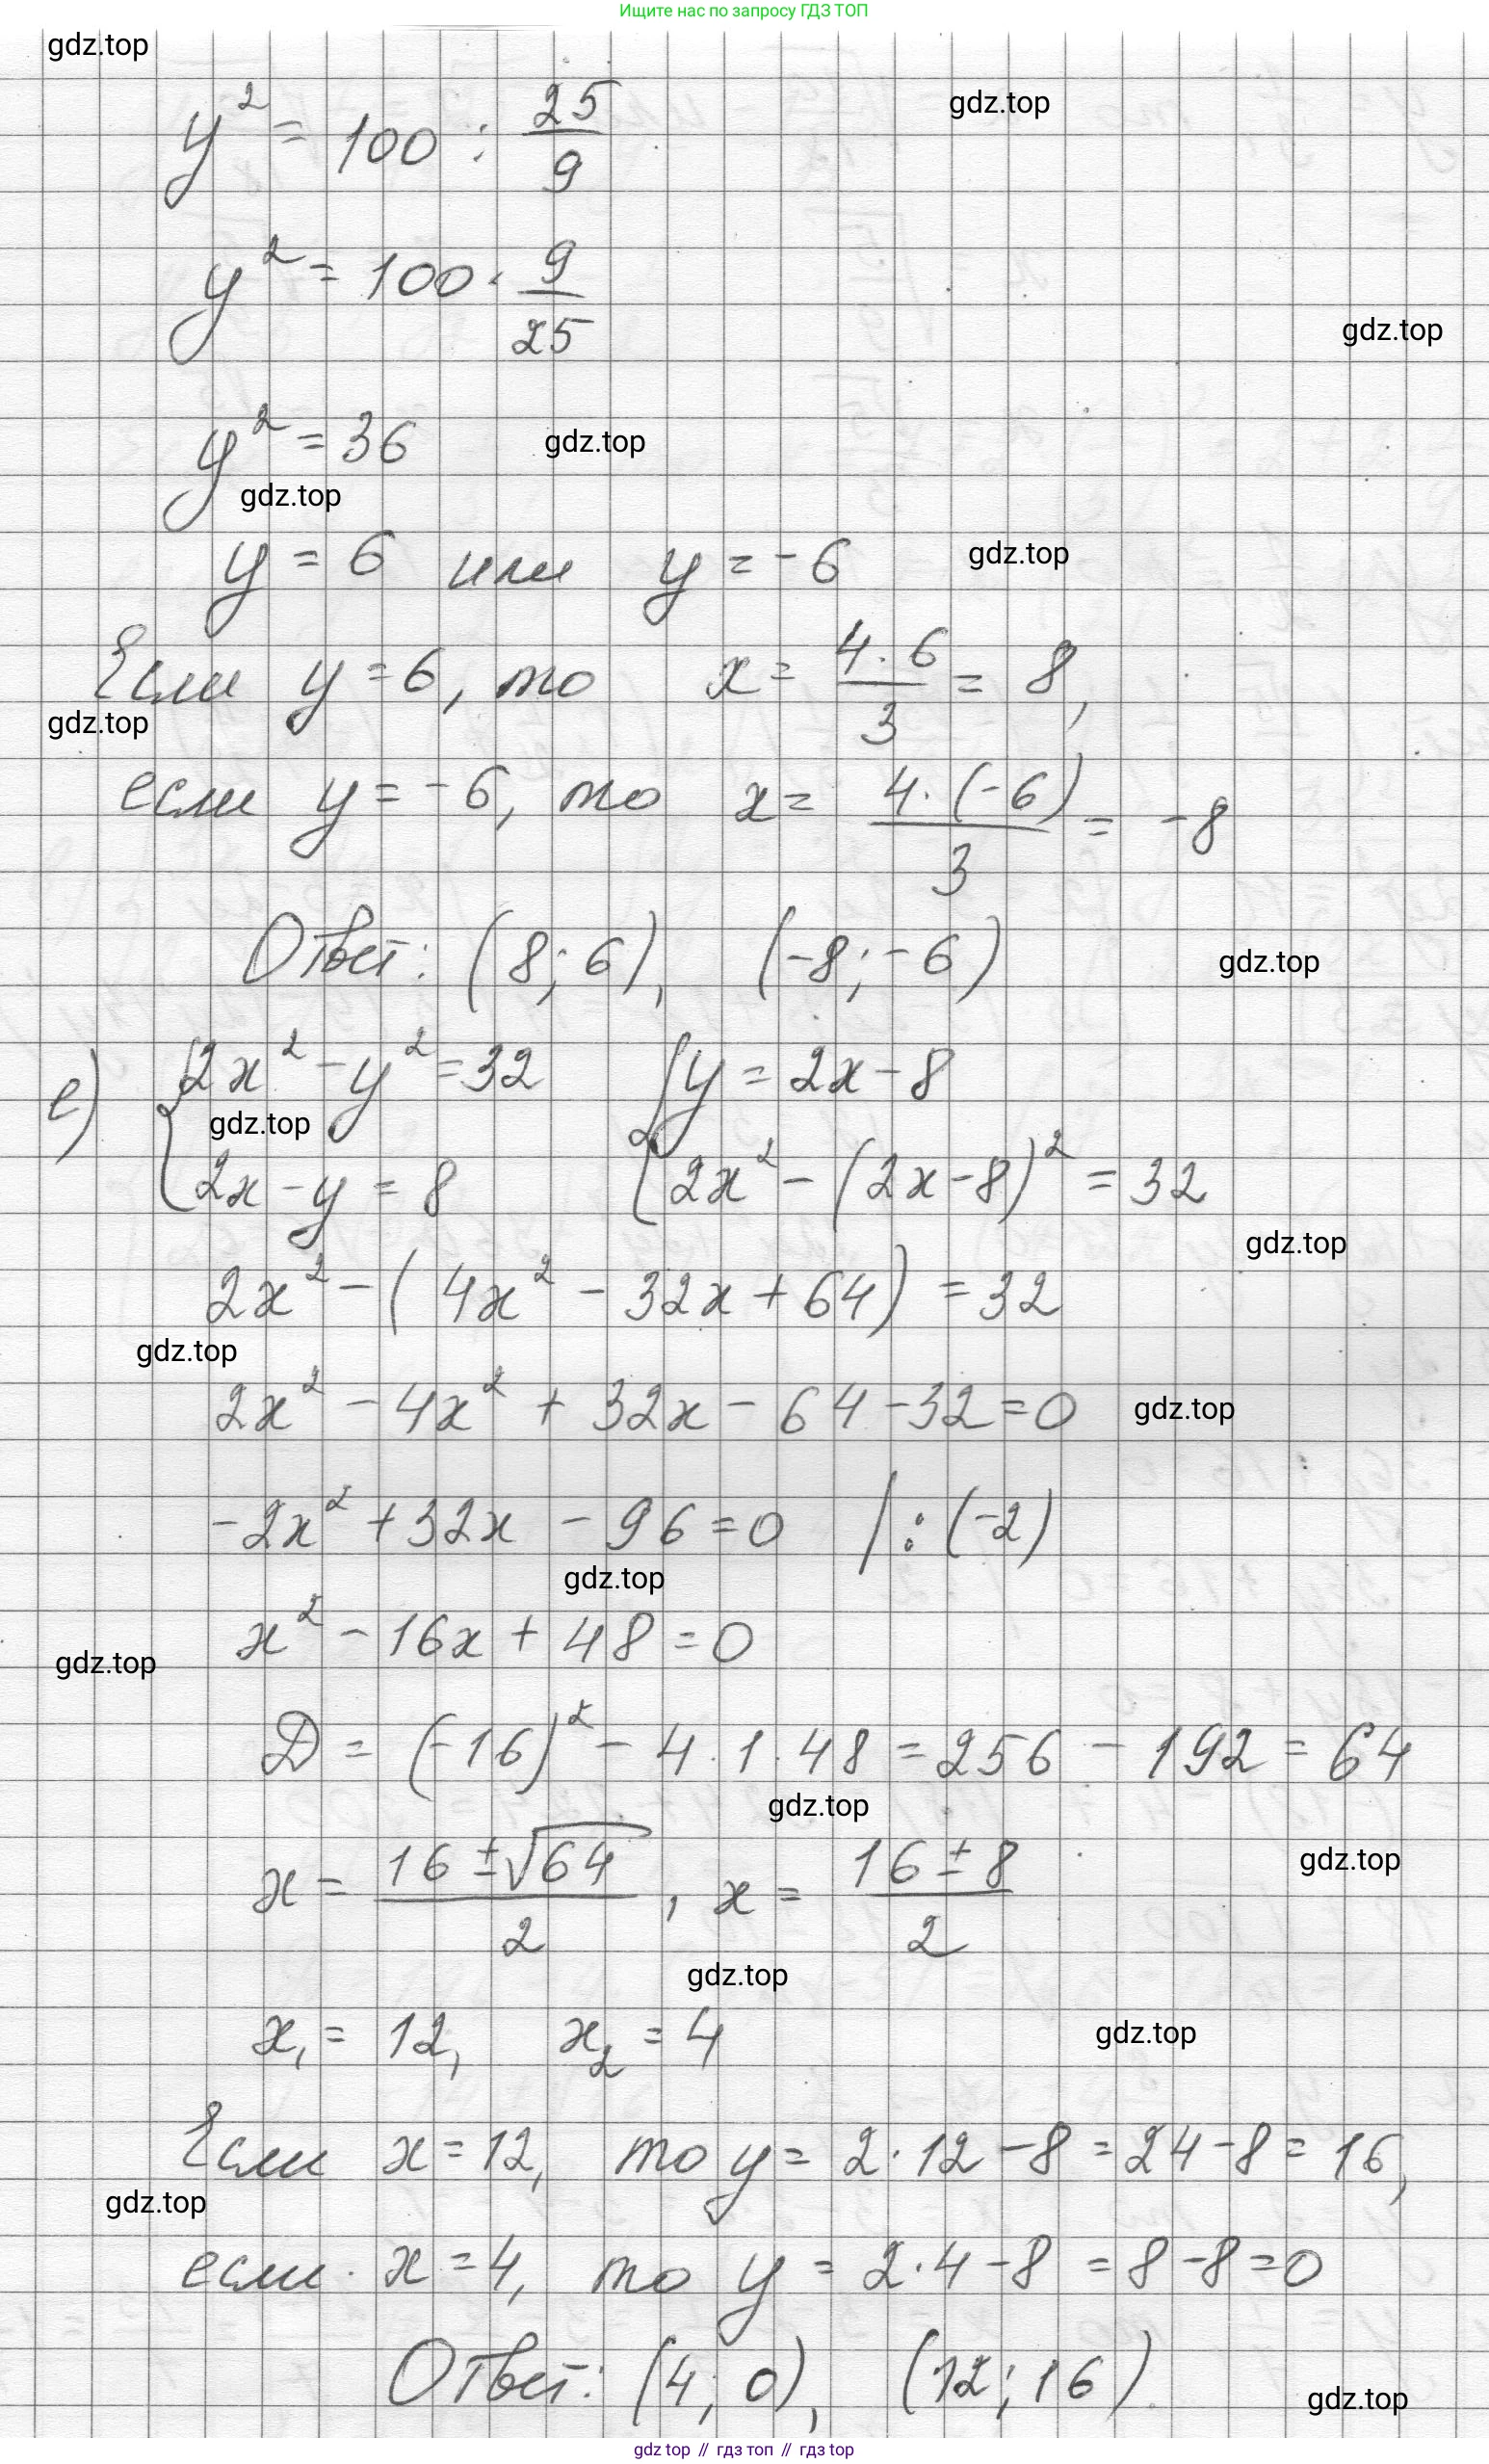 Ищите нас по запросу ГДЗ ТОП
gdz.top
y² = 100 : 25/9
gdz.top
y² = 100 · 9/25
gdz.top
y² = 36
gdz.top
gdz.top
y = 6 или y = -6
gdz.top
Если y = 6, то x = 4·6/3 = 8,
gdz.top
если y = -6, то x = 4·(-6)/3 = -8
Ответ: (8; 6), (-8; -6)
gdz.top
е) {2x² - y² = 32 {y = 2x - 8
gdz.top
2x - y = 8 2x² - (2x - 8)² = 32
gdz.top
2x² - (4x² - 32x + 64) = 32
gdz.top
2x² - 4x² + 32x - 64 - 32 = 0
gdz.top
-2x² + 32x - 96 = 0 | : (-2)
gdz.top
x² - 16x + 48 = 0
gdz.top
D = (-16)² - 4·1·48 = 256 - 192 = 64
gdz.top
x = (16 ± √64)/2, x = (16 ± 8)/2
gdz.top
gdz.top
x₁ = 12, x₂ = 4
gdz.top
Если x = 12, то y = 2·12 - 8 = 24 - 8 = 16,
gdz.top
если x = 4, то y = 2·4 - 8 = 8 - 8 = 0
Ответ: (4; 0), (12; 16).
gdz.top
gdz top // гдз топ // gdz top